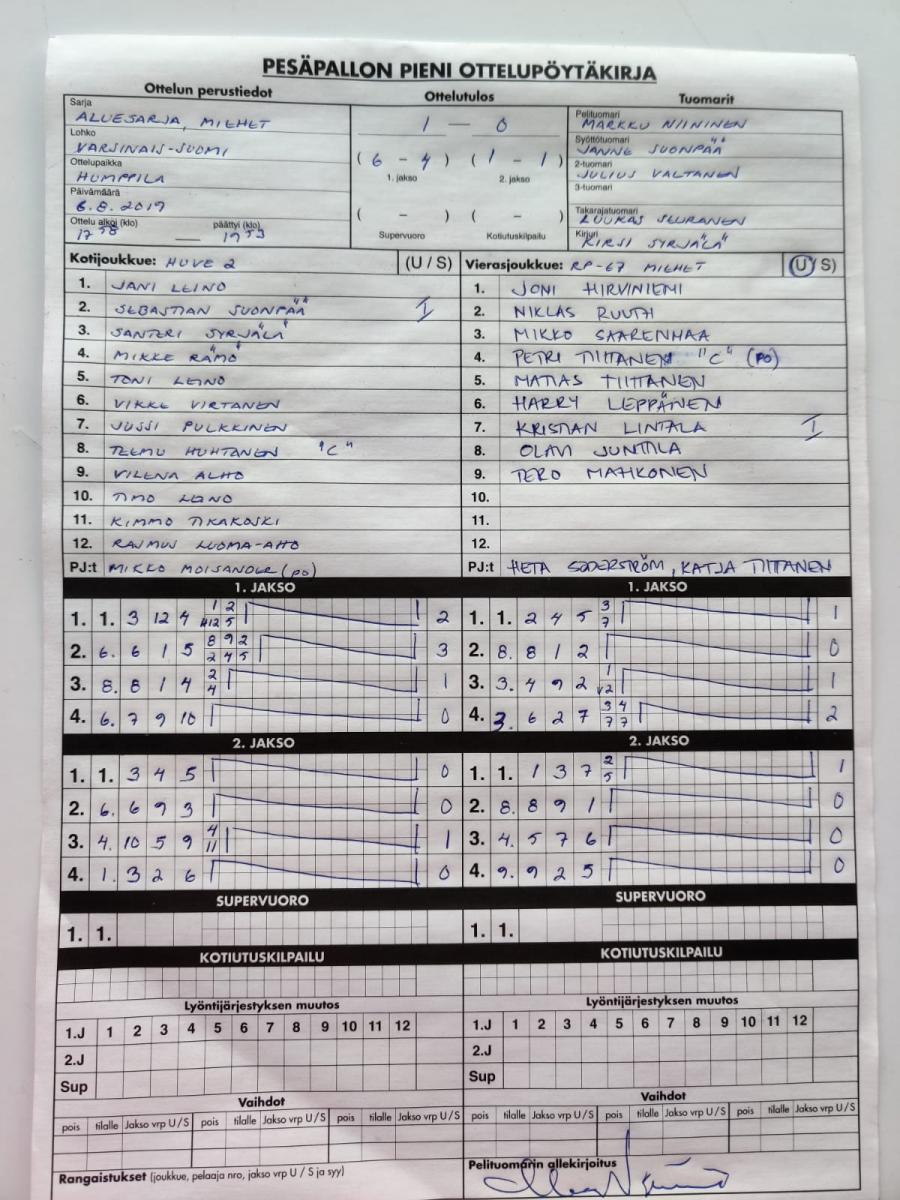 PESÄPALLON PIENI OTTELUPÖYTÄKIRJA
Ottelun perustiedot
Ottelutulos
Tuomarit
Sarja
ALUESARJA, MIEHET
Lohko
VARSINAIS-SUOMI
Ottelupaikka
HUMPPILA
Päivämäärä
6.8.2019
Ottelu alkoi (klo) päättyi (klo)
17 58 — 19 53
1 — 0
( 6 - 4 ) ( 1 - 1 )
1. jakso 2. jakso
( - ) ( - )
Supervuoro Kotiutuskilpailu
Pelituomari
MARKKU NIININEN
Syöttötuomari
JANNE SUONPÄÄ
2-tuomari
JULIUS VALTANEN
3-tuomari
Takarajatuomari
LUUKAS SEURANEN
Kirjuri
KIRSI SYRJÄLÄ
Kotijoukkue: HUVE 2 (U / S)
1. JANI LEINO
2. SEBASTIAN SUONPÄÄ I
3. SANTERI SYRJÄLÄ
4. MIKKE RÄMÖ
5. TONI LEINO
6. VIKKE VIRTANEN
7. JUSSI PULKKINEN
8. TEEMU HUHTANEN "C"
9. VILENA ALHO
10. TIMO LEINO
11. KIMMO TIKAKOSKI
12. RASMUS LUOMA-AHO
PJ:t MIKKO MOISANDER (po)
Vierasjoukkue: RP-67 MIEHET (U / S)
1. JONI HIRVINIEMI
2. NIKLAS RUUTH
3. MIKKO SAARENMAA
4. PETRI TIITTANEN "C" (po)
5. MATIAS TIITTANEN
6. HARRY LEPPÄNEN
7. KRISTIAN LINTALA I
8. OLAVI JUNTTILA
9. TERO MAHKONEN
10.
11.
12.
PJ:t HETA SÖDERSTRÖM, KATJA TIITTANEN
1. JAKSO
1. 1. 3 12 4 1 2 5 2
2. 6. 6 1 5 8 9 2 2 4 5 3
3. 8. 8 1 4 2 4 1
4. 6. 7 9 10 0
1. JAKSO
1. 1. 2 4 5 3 7 1
2. 8. 8 1 2 0
3. 3. 4 9 2 1
4. 3. 6 2 7 3 4 7 7 2
2. JAKSO
1. 1. 3 4 5 0
2. 6. 6 9 3 0
3. 4. 10 5 9 4 11 1
4. 1. 3 2 6 0
2. JAKSO
1. 1. 1 3 7 2 5 1
2. 8. 8 9 1 0
3. 4. 5 7 6 0
4. 9. 9 2 5 0
SUPERVUORO
1. 1.
SUPERVUORO
1. 1.
KOTIUTUSKILPAILU
KOTIUTUSKILPAILU
Lyöntijärjestyksen muutos
1.J 1 2 3 4 5 6 7 8 9 10 11 12
2.J
Sup
Lyöntijärjestyksen muutos
1.J 1 2 3 4 5 6 7 8 9 10 11 12
2.J
Sup
Vaihdot
pois tilalle Jakso vrp U / S pois tilalle Jakso vrp U / S pois tilalle Jakso vrp U / S
Vaihdot
pois tilalle Jakso vrp U / S pois tilalle Jakso vrp U / S pois tilalle Jakso vrp U / S
Rangaistukset (joukkue, pelaaja nro, jakso vrp U / S ja syy)
Pelituomarin allekirjoitus